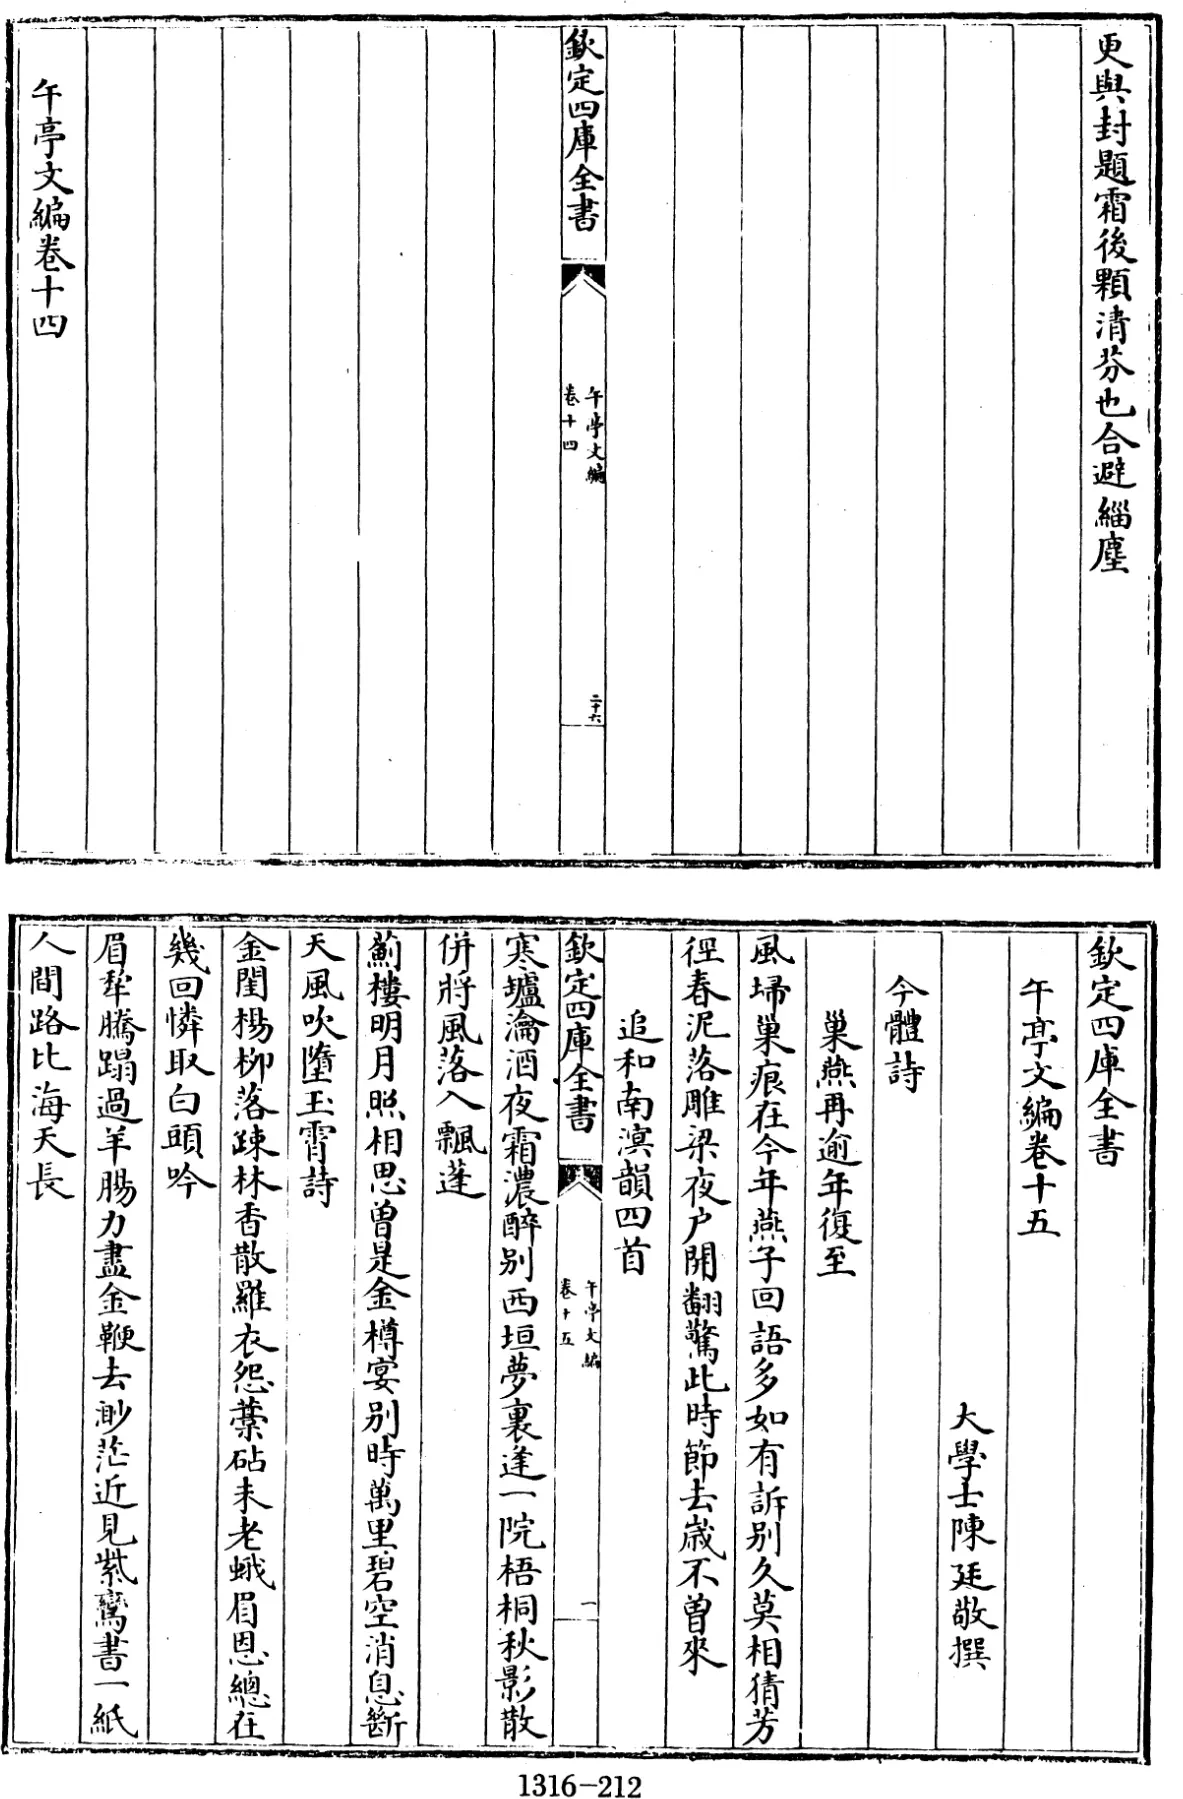 更與封題霜後顆清芬也合避緇塵
欽定四庫全書
午亭文編
卷十四
二十六
午亭文編卷十四
欽定四庫全書
午亭文編卷十五
大學士陳廷敬撰
今體詩
巢燕再逾年復至
風埽巢痕在今年燕子回語多如有訴別久莫相猜芳
徑春泥落雕梁夜户開翻驚此時節去歲不曾來
追和南溟韻四首
欽定四庫全書
午亭文編
卷十五
一
寒壚瀹酒夜霜濃醉別西垣夢裏逢一院梧桐秋影散
併將風落入飄蓬
薊樓明月照相思曾是金樽宴別時萬里碧空消息斷
天風吹墮玉霄詩
金閨楊柳落疎林香散羅衣怨藁砧未老蛾眉恩總在
幾回憐取白頭吟
眉犂騰蹋過羊腸力盡金鞭去渺茫近見紫鸞書一紙
人間路比海天長
1316-212